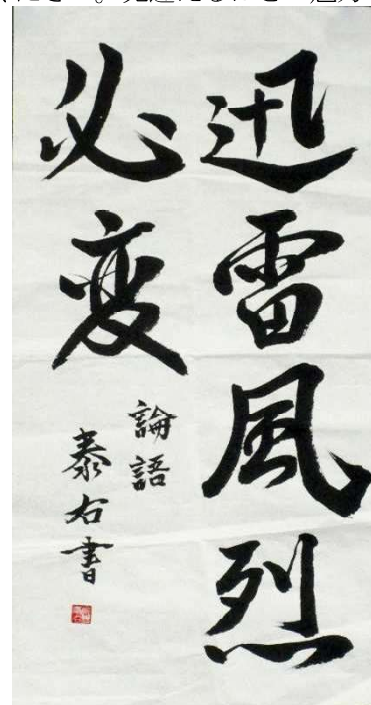 迅雷風烈
必変
論語
泰右書